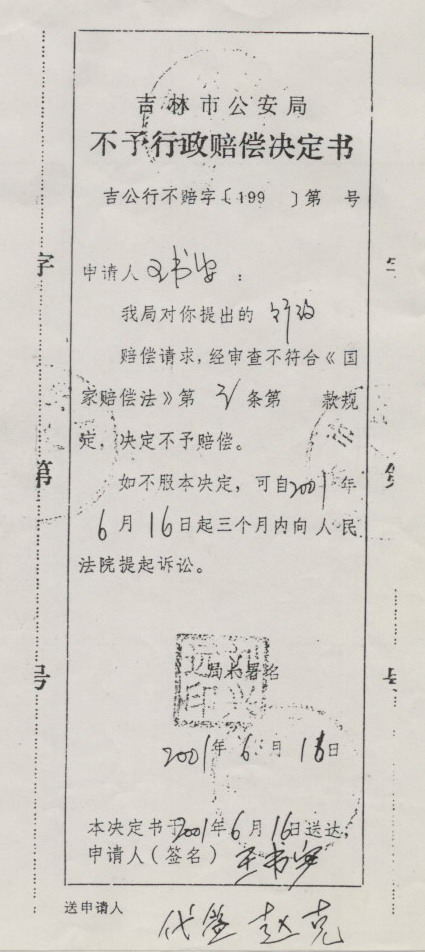 吉林市公安局
不予行政赔偿决定书
吉公行不赔字〔199 〕第 号
申请人 王书安：
我局对你提出的 行政
赔偿请求，经审查不符合《国
家赔偿法》第 3 条第 款规
定，决定不予赔偿。
如不服本决定，可自2001年
6月16日起三个月内向人民
法院提起诉讼。
局长署名
2001年6月16日
本决定书于2001年6月16日送达，
申请人（签名） 王书安
送申请人
代签 赵克
字
第
号
号